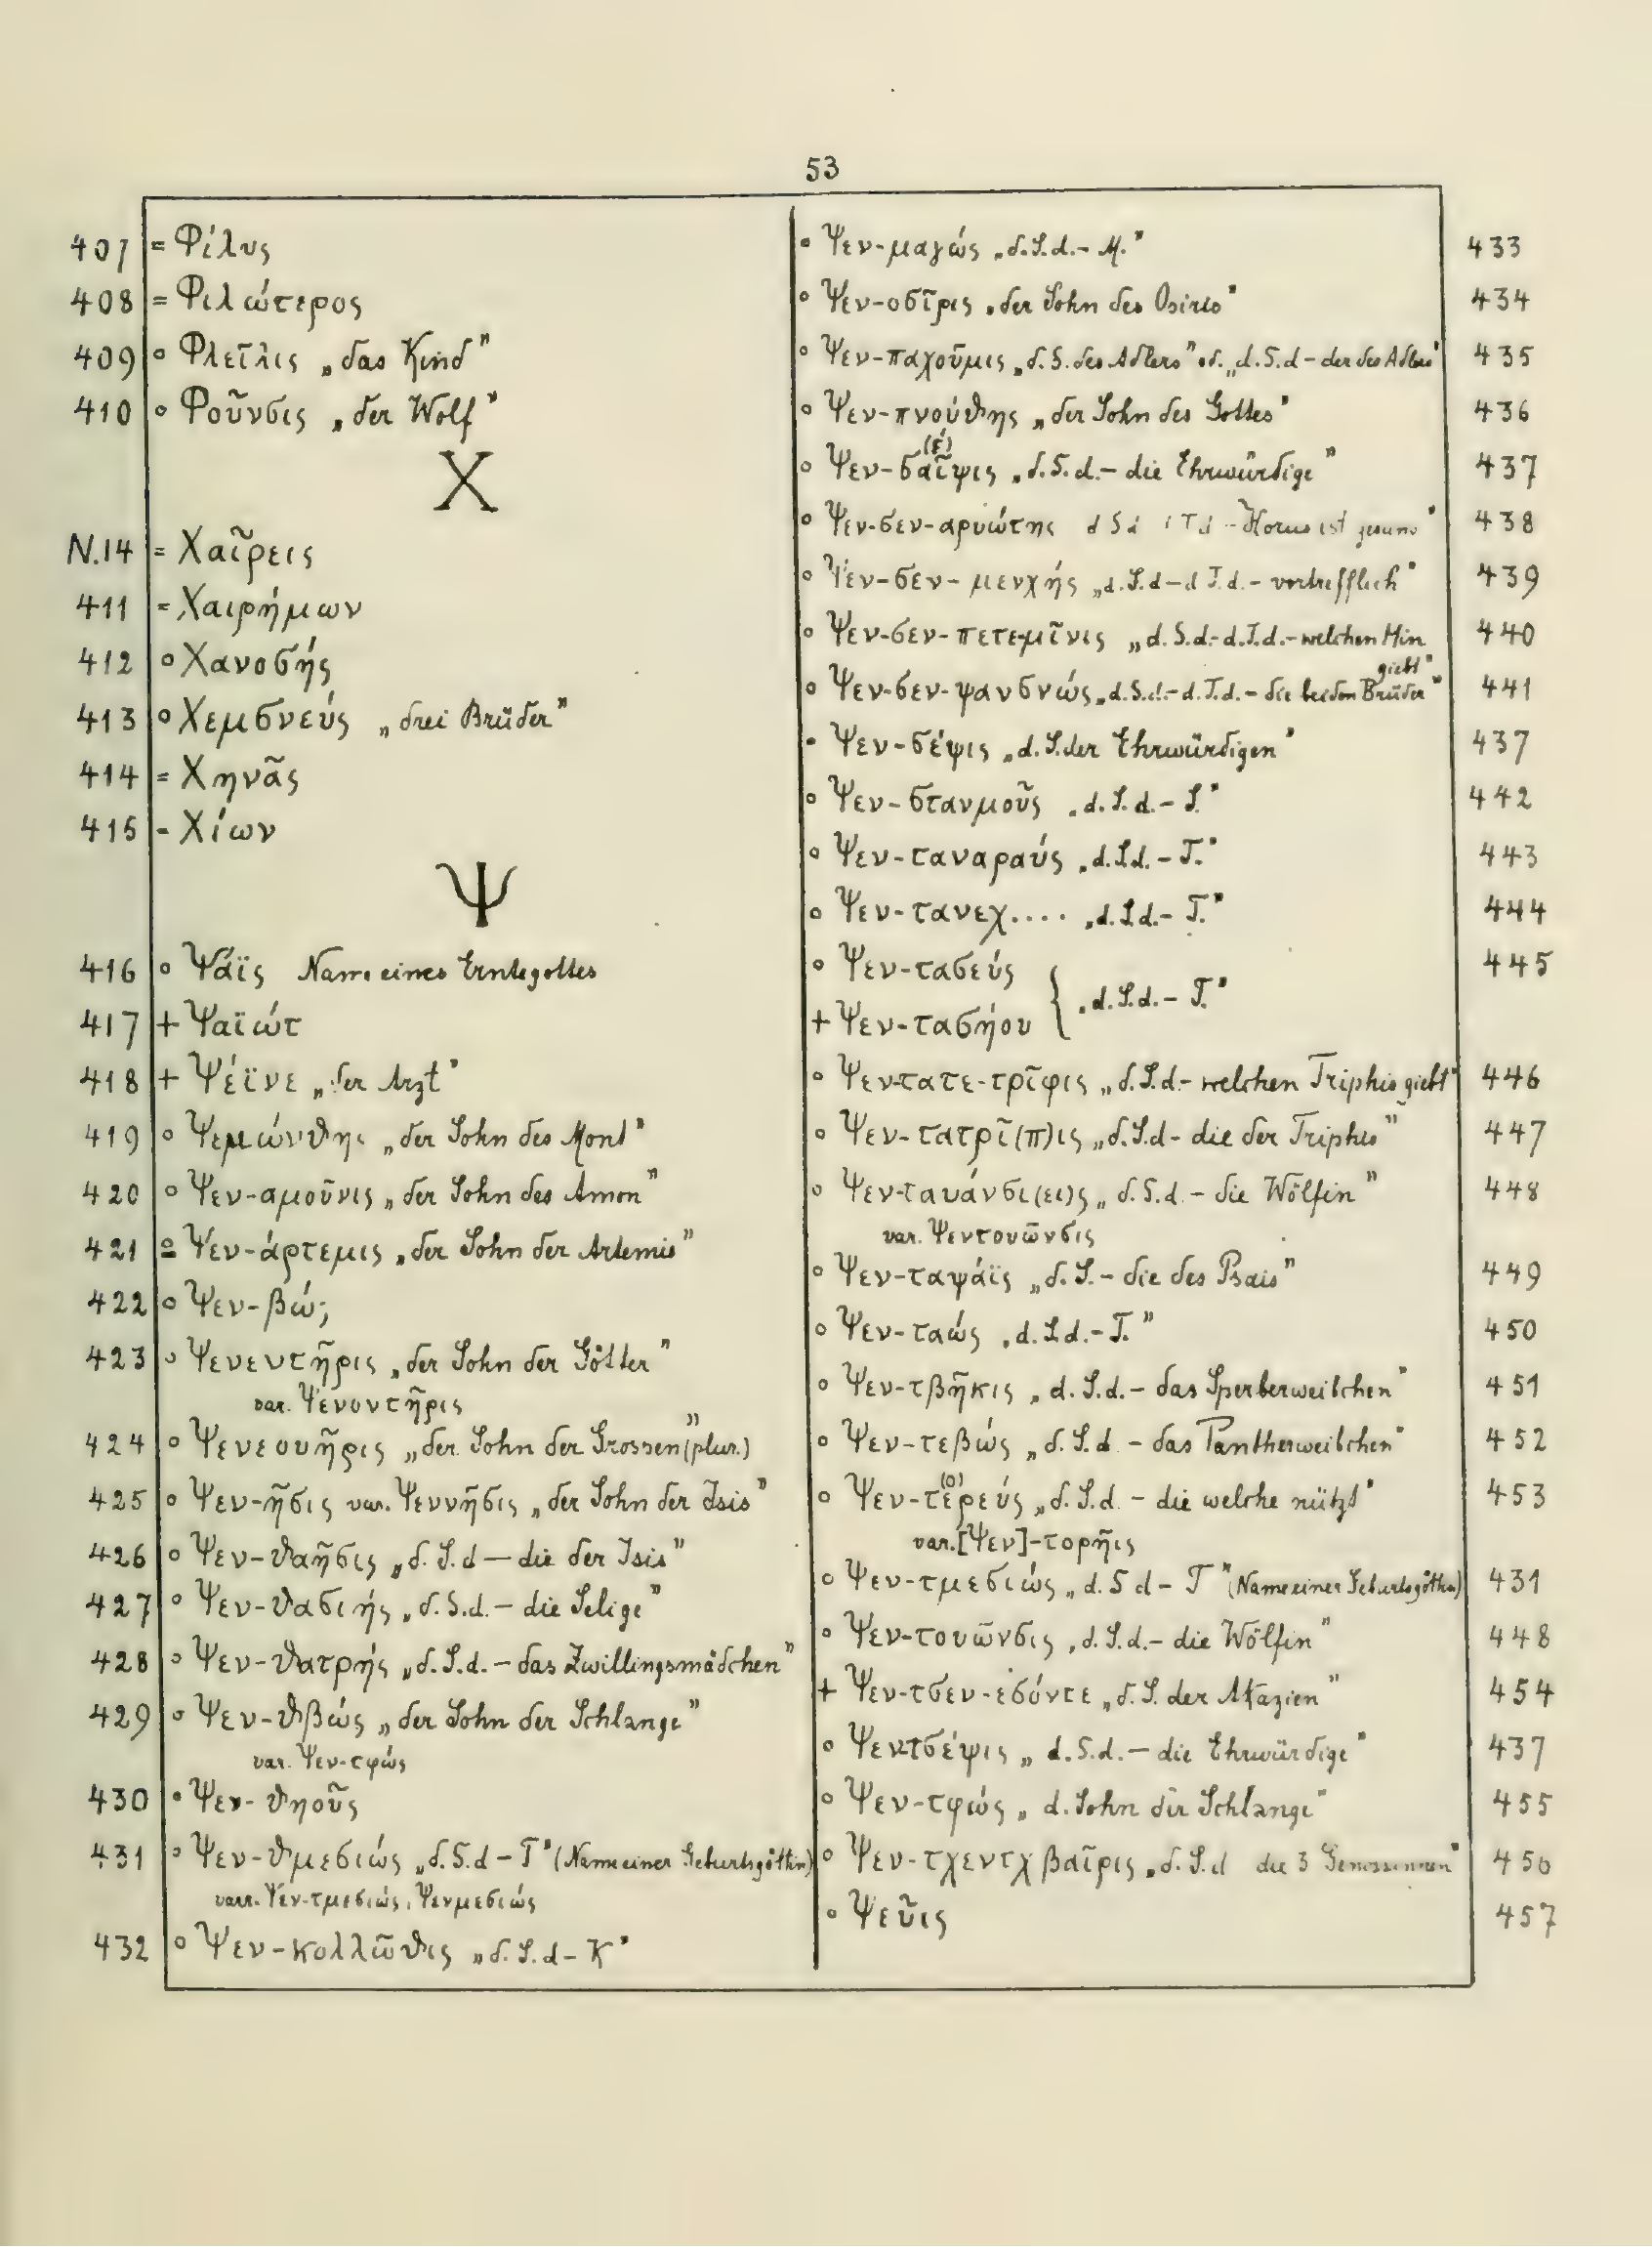 53
407 = Φίλυς
408 = Φιλώτερος
409 o Φλεῖλις „das Kind”
410 o Φοῦνσις „der Wolf”
X
N.14 = Χαῖρεις
411 = Χαιρήμων
412 o Χανοσής
413 o Χεμσνεύς „drei Brüder”
414 = Χηνᾶς
415 = Χίων
Ψ
416 o Ψάϊς Name eines Erntegottes
417 + Ψαϊώτ
418 + Ψέϊνε „der Arzt”
419 o Ψεμώνθης „der Sohn des Mont”
420 o Ψεν-αμοῦνις „der Sohn des Amon”
421 o Ψεν-άρτεμις „der Sohn der Artemis”
422 o Ψεν-βώς
423 o Ψενεντῆρις „der Sohn der Götter”
var. Ψενοντῆρις
424 o Ψενεουῆρις „der Sohn der Grossen” (plur.)
425 o Ψεν-ῆσις var. Ψεννῆσις „der Sohn der Isis”
426 o Ψεν-θαῆσις „d. S. d — die der Isis”
427 o Ψεν-θασιής „d. S. d. — die Selige”
428 o Ψεν-θατρής „d. S. d. — das Zwillingsmädchen”
429 o Ψεν-θβώς „der Sohn der Schlange”
var. Ψεν-τφώς
430 o Ψεν-θηοῦς
431 o Ψεν-θμεσιώς „d. S. d — T” (Name einer Geburtsgöttin)
varr. Ψεν-τμεσιώς, Ψενμεσιώς
432 o Ψεν-κολλῶθις „d. S. d — K”
o Ψεν-μαγώς „d. S. d. — M.” 433
o Ψεν-οσῖρις „der Sohn des Osiris” 434
o Ψεν-παχοῦμις „d. S. des Adlers” od. „d. S. d — der des Adlers” 435
o Ψεν-πνούθης „der Sohn des Gottes” 436
o Ψεν-σα(έ)ῖψις „d. S. d. — die Ehrwürdige” 437
o Ψεν-σεν-αρυώτης d S d T d — Horus ist gesund” 438
o Ψεν-σεν-μενχής „d. S. d — d T. d. — vortrefflich” 439
o Ψεν-σεν-πετεμῖνις „d. S. d. — d. T. d. — welchen Min giebt” 440
o Ψεν-σεν-ψανσνώς „d. S. d. — d. T. d. — die beiden Brüder” 441
o Ψεν-σέψις „d. S. der Ehrwürdigen” 437
o Ψεν-στανμοῦς „d. S. d. — S.” 442
o Ψεν-ταναραύς „d. S. d. — T.” 443
o Ψεν-τανεχ.... „d. S d. — T.” 444
o Ψεν-τασεύς 445
+ Ψεν-τασήου } „d. S. d. — T.”
o Ψεν-τατε-τρῖφις „d. S. d. — welchen Triphis giebt” 446
o Ψεν-τατρῖ(π)ις „d. S. d — die der Triphis” 447
o Ψεν-ταυάνσι(ει)ς „d. S. d — die Wölfin” 448
var. Ψεντουῶνσις
o Ψεν-ταψάϊς „d. S. — die des Psais” 449
o Ψεν-ταώς „d. S d. — T.” 450
o Ψεν-τβῆκις „d. S. d. — das Sperberweibchen” 451
o Ψεν-τεβώς „d. S. d — das Pantherweibchen” 452
o Ψεν-τέ(ο)ρεύς „d. S. d. — die welche nützt” 453
var. [Ψεν]-τορῆις
o Ψεν-τμεσιώς „d. S d — T” (Name einer Geburtsgöttin) 431
o Ψεν-τουῶνσις „d. S. d. — die Wölfin” 448
+ Ψεν-τσεν-εσόντε „d. S. der Akazien” 454
o Ψεντσέψις „d. S. d. — die Ehrwürdige” 437
o Ψεν-τφώς „d. Sohn der Schlange” 455
o Ψεν-τχεντχβαῖρις „d. S. d die 3 Genossinnen” 456
o Ψεῦις 457